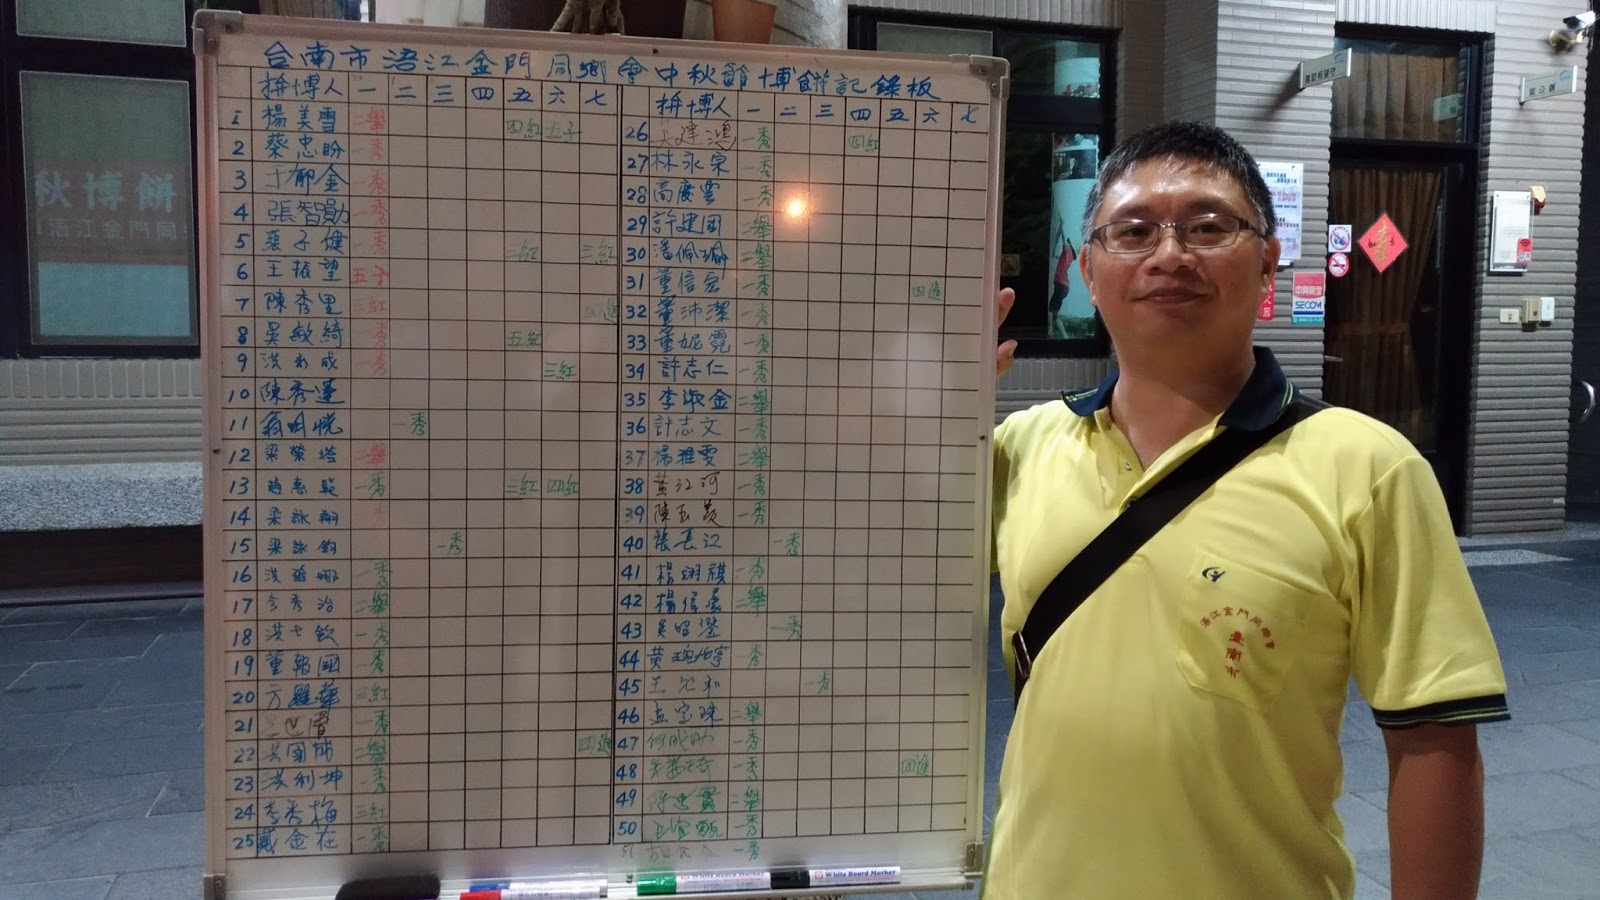 台南市浯江金門同鄉會中秋節博餅記錄板
拚博人 一 二 三 四 五 六 七
1 楊美雪 二舉 四紅 五子
2 蔡忠盼 一秀
3 于郁金 一秀
4 張智勛 一秀
5 蔡子健 一秀 三紅 三紅
6 王振望 五子
7 陳秀里 三紅 四進
8 吳敏綺 一秀 五紅
9 洪利成 一秀 三紅
10 陳秀蓮
11 翁明恍 一秀
12 梁榮塔 二舉
13 趙惠範 一秀 三紅 四紅
14 梁詠翔 一秀
15 梁詠鈞 一秀
16 洪 一秀
17 李秀治 二舉
18 洪七欽 一秀
19 董報國 一秀
20 方麗華 三紅
21 一秀
22 國成 二舉 四進
23 洪利坤 一秀
24 李秀梅 三紅
25 戴金在 一秀
拚博人 一 二 三 四 五 六 七
26 吳建鴻 一秀 四紅
27 林永泉 一秀
28 高慶雲 一秀
29 許建國 二舉
30 潘佩瑜 二舉
31 董信宏 一秀 四進
32 董沛潔 一秀
33 董妮霓 一秀
34 許志仁 一秀
35 李淑金 二舉
36 許志文 一秀
37 楊雅雯 二舉
38 黃江河 一秀
39 陳玉 一秀
40 張長江 一秀
41 楊翊祺 一秀
42 楊信 二舉
43 吳昭瑩 一秀
44 黃琬婷 一秀
45 王 和 一秀
46 孟宝珠 二舉
47 何成助 一秀
48 一秀 四進
49 二舉
50 一秀
51 一秀
White Board Marker
White Board Marker
秋博餅
浯江金門同
浯江金門同鄉會
臺南市
中興保全
SECOM